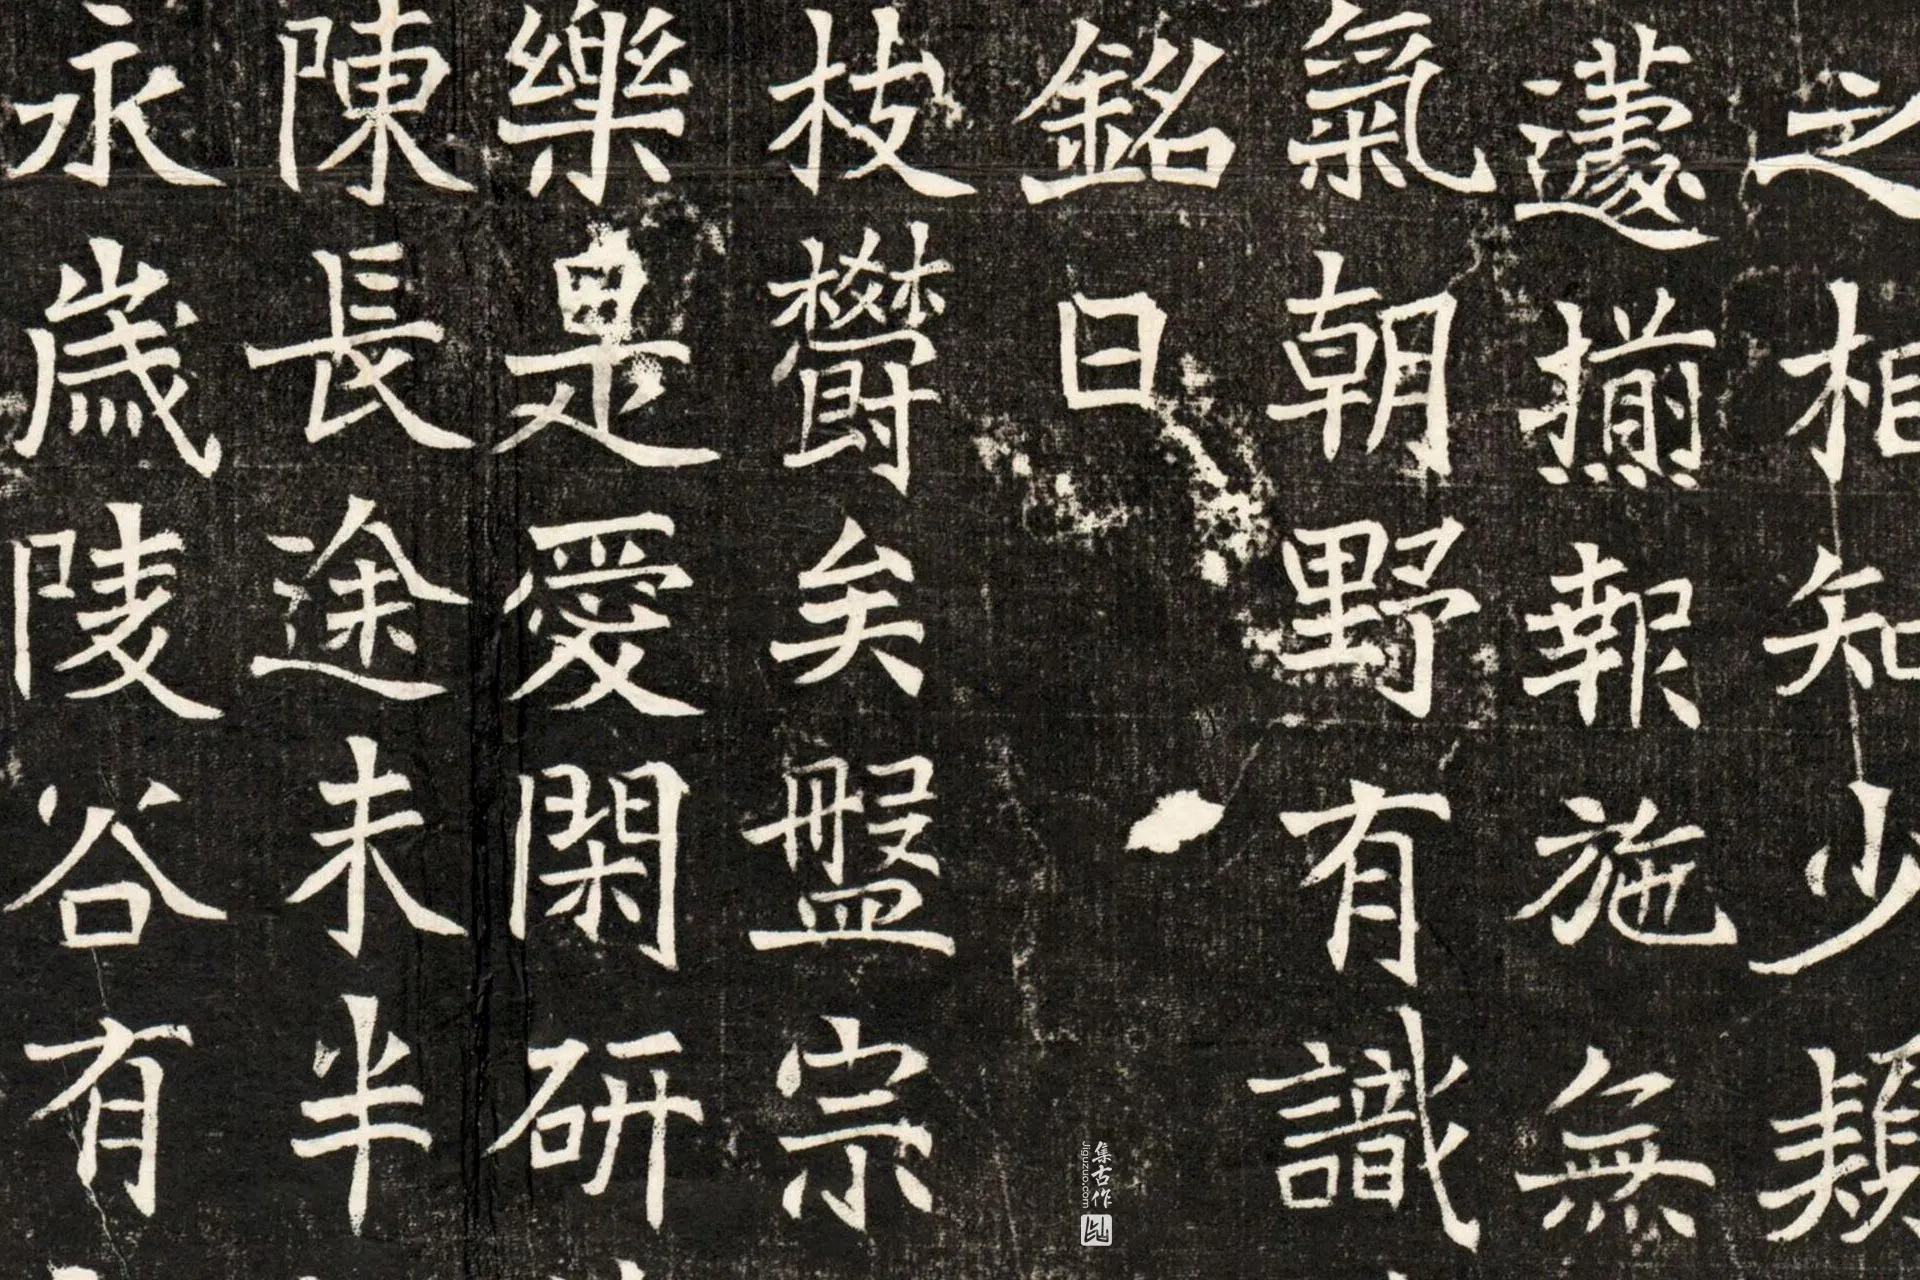 之相知少類
蘧揣報施無
氣朝野有識
銘曰
枝欝矣盤宗
樂是愛閑研
陳長途未半
永歲陵谷有
集古作
Jiguzuo.com